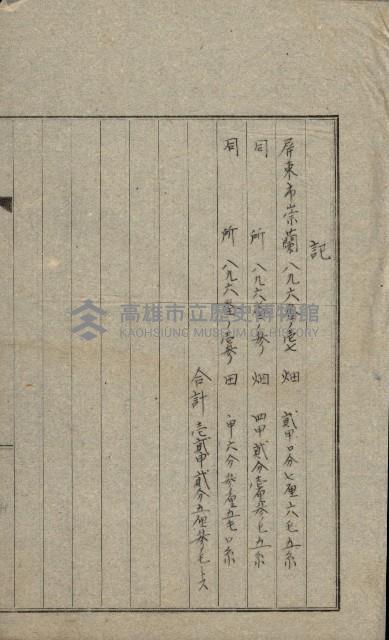 記
屏東市崇蘭 八九六番ノ壱七 畑 貳甲口分七厘六毛五糸
同 所 八九六番ノ参 畑 四甲貳分壱厘参毛五糸
同 所 八九六番ノ壱参 田 甲六分参厘五毛口糸
合計 壱貳甲貳分五厘参毛
高雄市立歷史博物館
KAOHSIUNG MUSEUM OF HISTORY